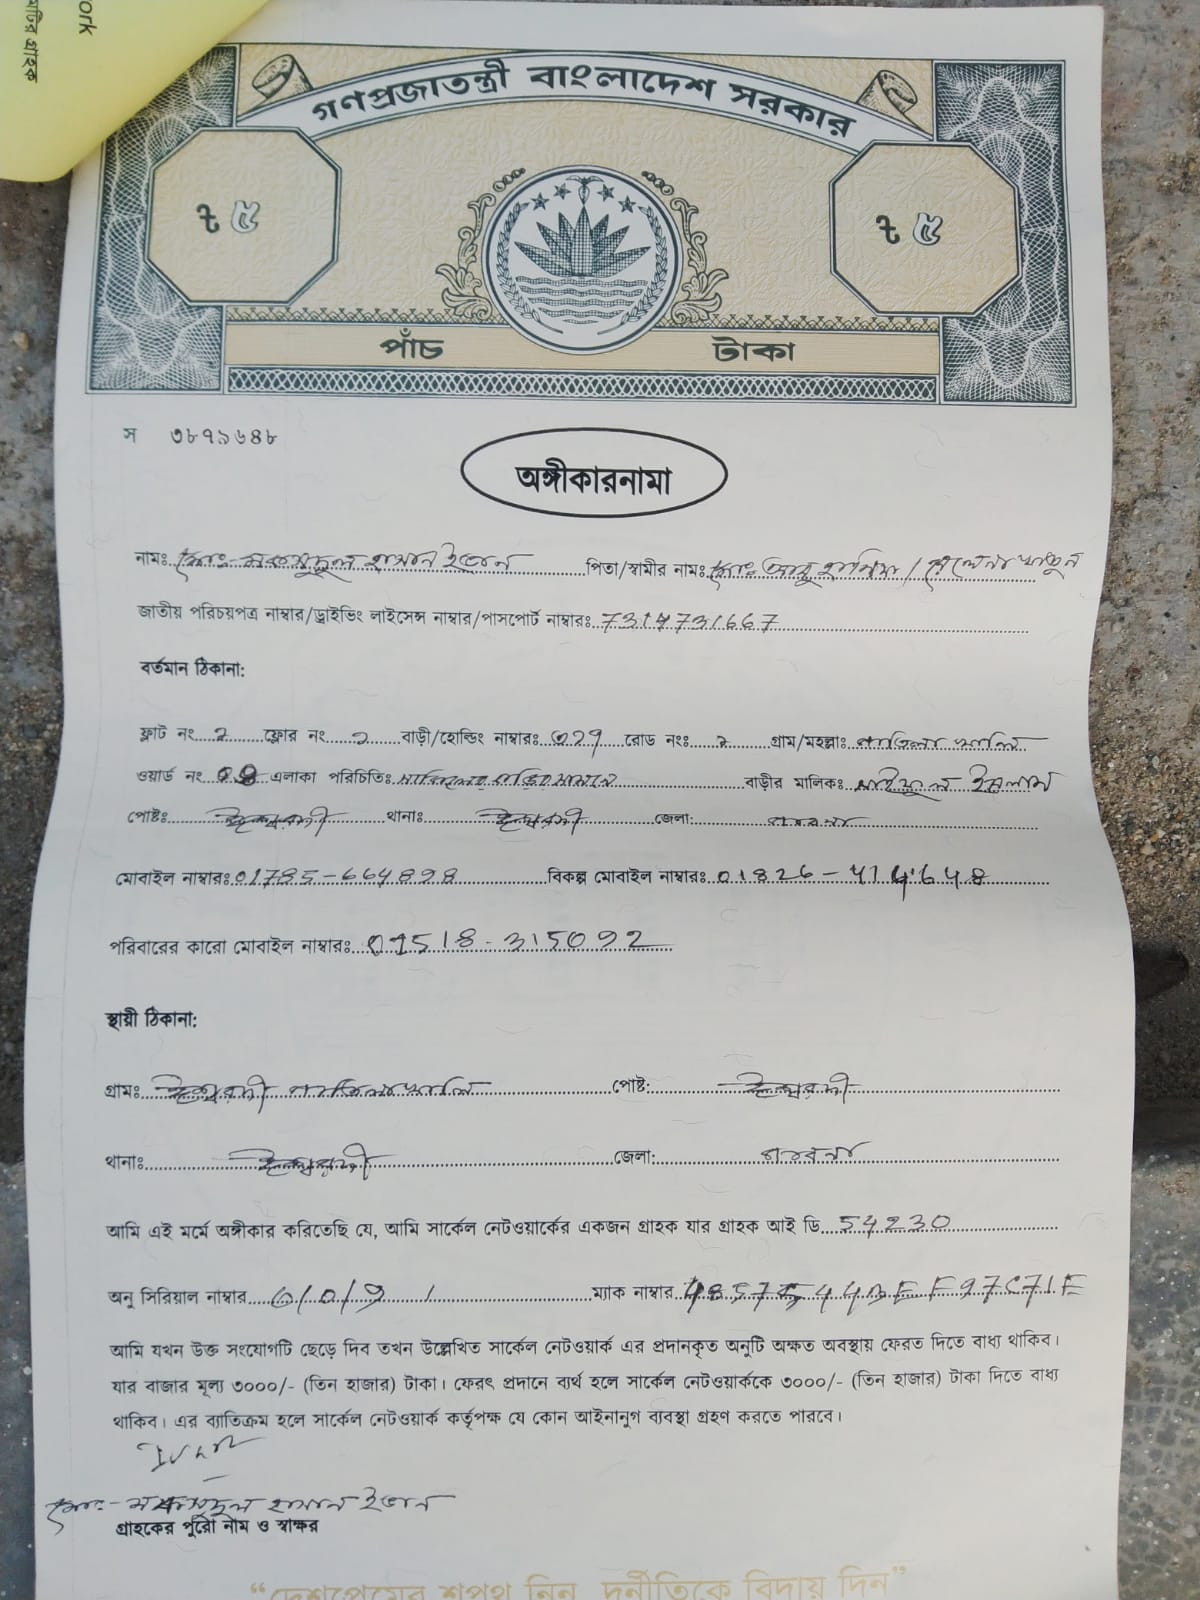 ork
মটির গ্রাহক
গণপ্রজাতন্ত্রী বাংলাদেশ সরকার
৳ ৫ ৳ ৫
পাঁচ টাকা
স ৩৮৭৯৬৪৮
অঙ্গীকারনামা
নামঃ মোঃ- মাকসুদুল হাসান ইভান পিতা/স্বামীর নামঃ মোঃ আবু হানিফা / খাতুন
জাতীয় পরিচয়পত্র নাম্বার/ড্রাইভিং লাইসেন্স নাম্বার/পাসপোর্ট নাম্বারঃ 7314731667
বর্তমান ঠিকানা:
ফ্লাট নং ২ ফ্লোর নং ২ বাড়ী/হোল্ডিং নাম্বারঃ রোড নংঃ ২ গ্রাম/মহল্লাঃ
ওয়ার্ড নং এলাকা পরিচিতিঃ বাড়ীর মালিকঃ সাইফুল ইসলাম
পোষ্টঃ ঈশ্বরদী থানাঃ ঈশ্বরদী জেলা: পাবনা
মোবাইল নাম্বারঃ 01785-664898 বিকল্প মোবাইল নাম্বারঃ 01826-414648
পরিবারের কারো মোবাইল নাম্বারঃ 01518-315092
স্থায়ী ঠিকানা:
গ্রামঃ ঈশ্বরদী পোষ্ট: ঈশ্বরদী
থানাঃ ঈশ্বরদী জেলা: পাবনা
আমি এই মর্মে অঙ্গীকার করিতেছি যে, আমি সার্কেল নেটওয়ার্কের একজন গ্রাহক যার গ্রাহক আই ডি 54230
অনু সিরিয়াল নাম্বার ম্যাক নাম্বার
আমি যখন উক্ত সংযোগটি ছেড়ে দিব তখন উল্লেখিত সার্কেল নেটওয়ার্ক এর প্রদানকৃত অনুটি অক্ষত অবস্থায় ফেরত দিতে বাধ্য থাকিব।
যার বাজার মূল্য ৩০০০/- (তিন হাজার) টাকা। ফেরৎ প্রদানে ব্যর্থ হলে সার্কেল নেটওয়ার্ককে ৩০০০/- (তিন হাজার) টাকা দিতে বাধ্য
থাকিব। এর ব্যাতিক্রম হলে সার্কেল নেটওয়ার্ক কর্তৃপক্ষ যে কোন আইনানুগ ব্যবস্থা গ্রহণ করতে পারবে।
মোঃ- মাকসুদুল হাসান ইভান
গ্রাহকের পুরো নাম ও স্বাক্ষর
“দেশপ্রেমের শপথ নিন, দুর্নীতিকে বিদায় দিন”